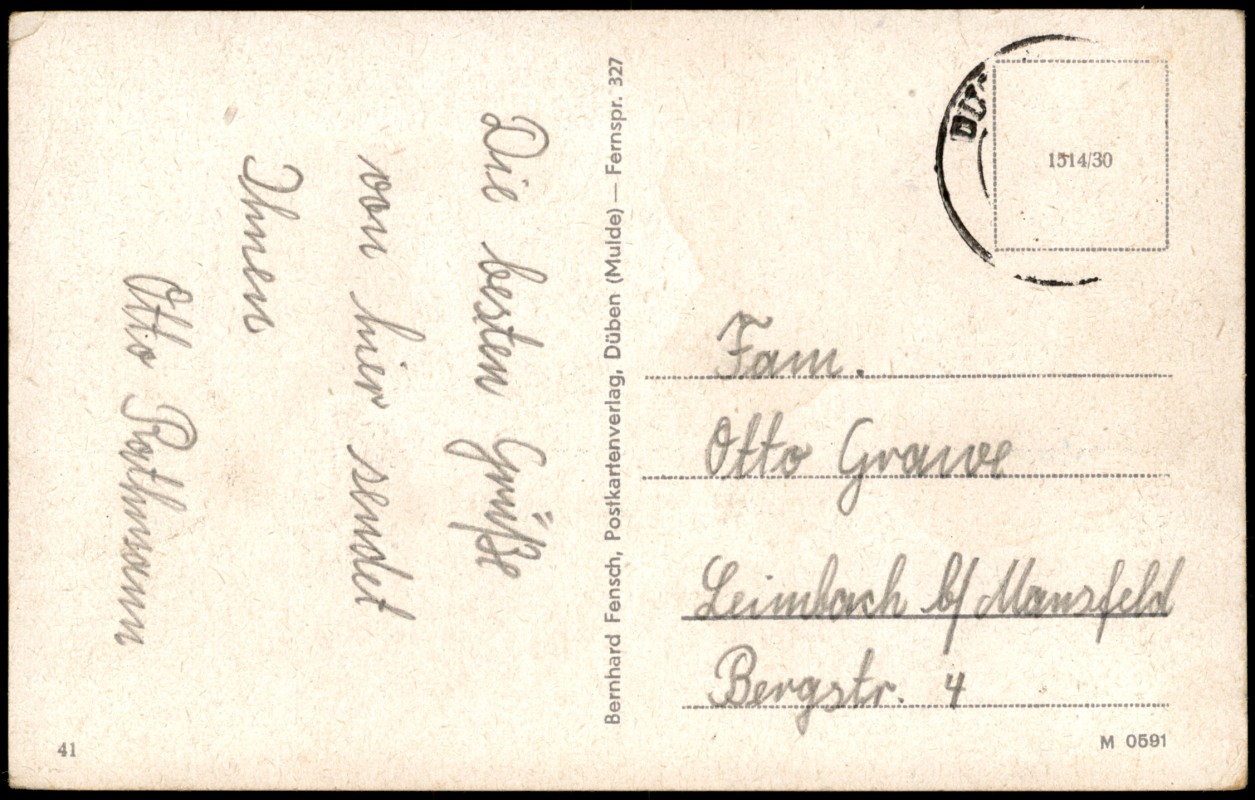 Die besten Grüße
von hier sendet
Ihnen
Otto Rathmann
Bernhard Fensch, Postkartenverlag, Düben (Mulde) — Fernspr. 327
1514/30
Fam.
Otto Grawe
Leimbach b/ Mansfeld
Bergstr. 4
41
M 0591